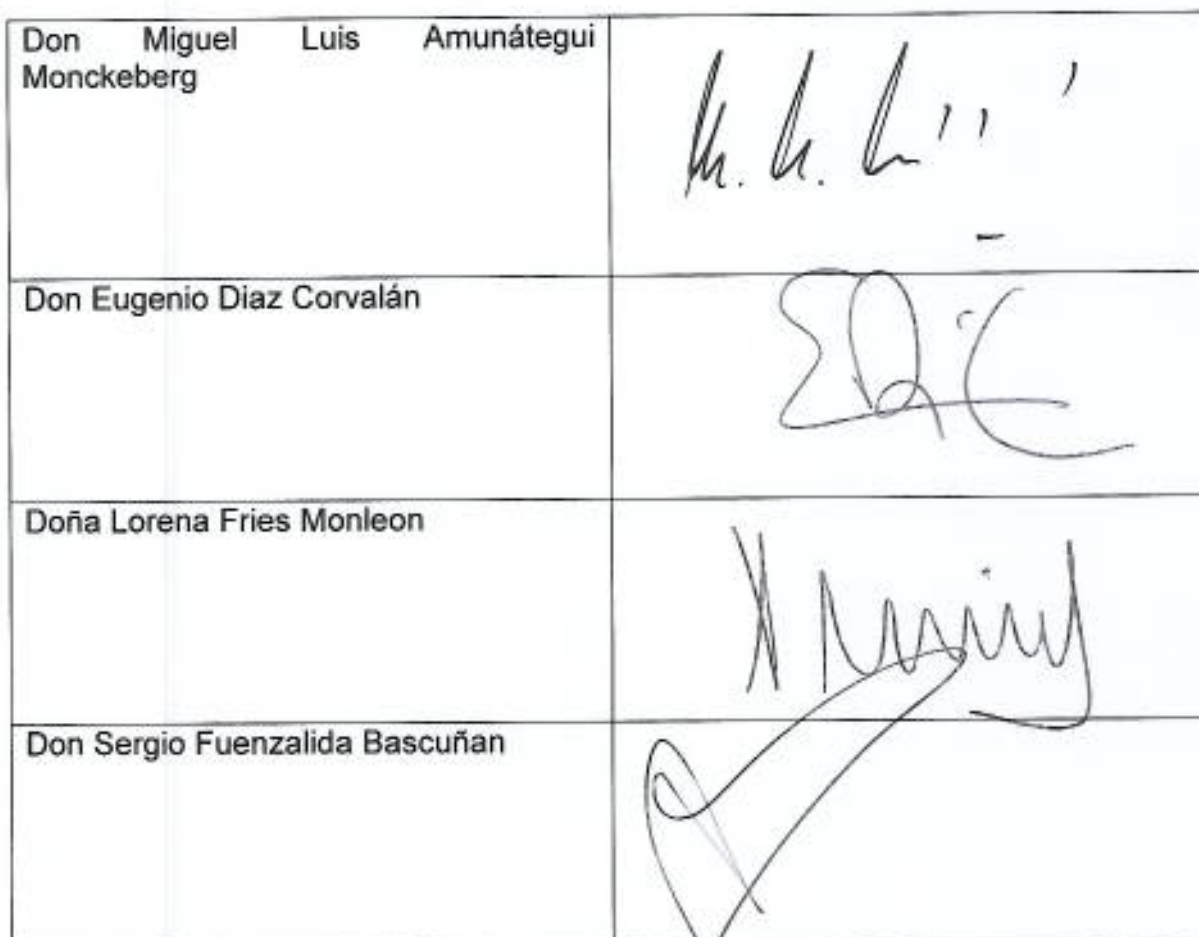 Don Miguel Luis Amunátegui
Monckeberg
Don Eugenio Diaz Corvalán
Doña Lorena Fries Monleon
Don Sergio Fuenzalida Bascuñan